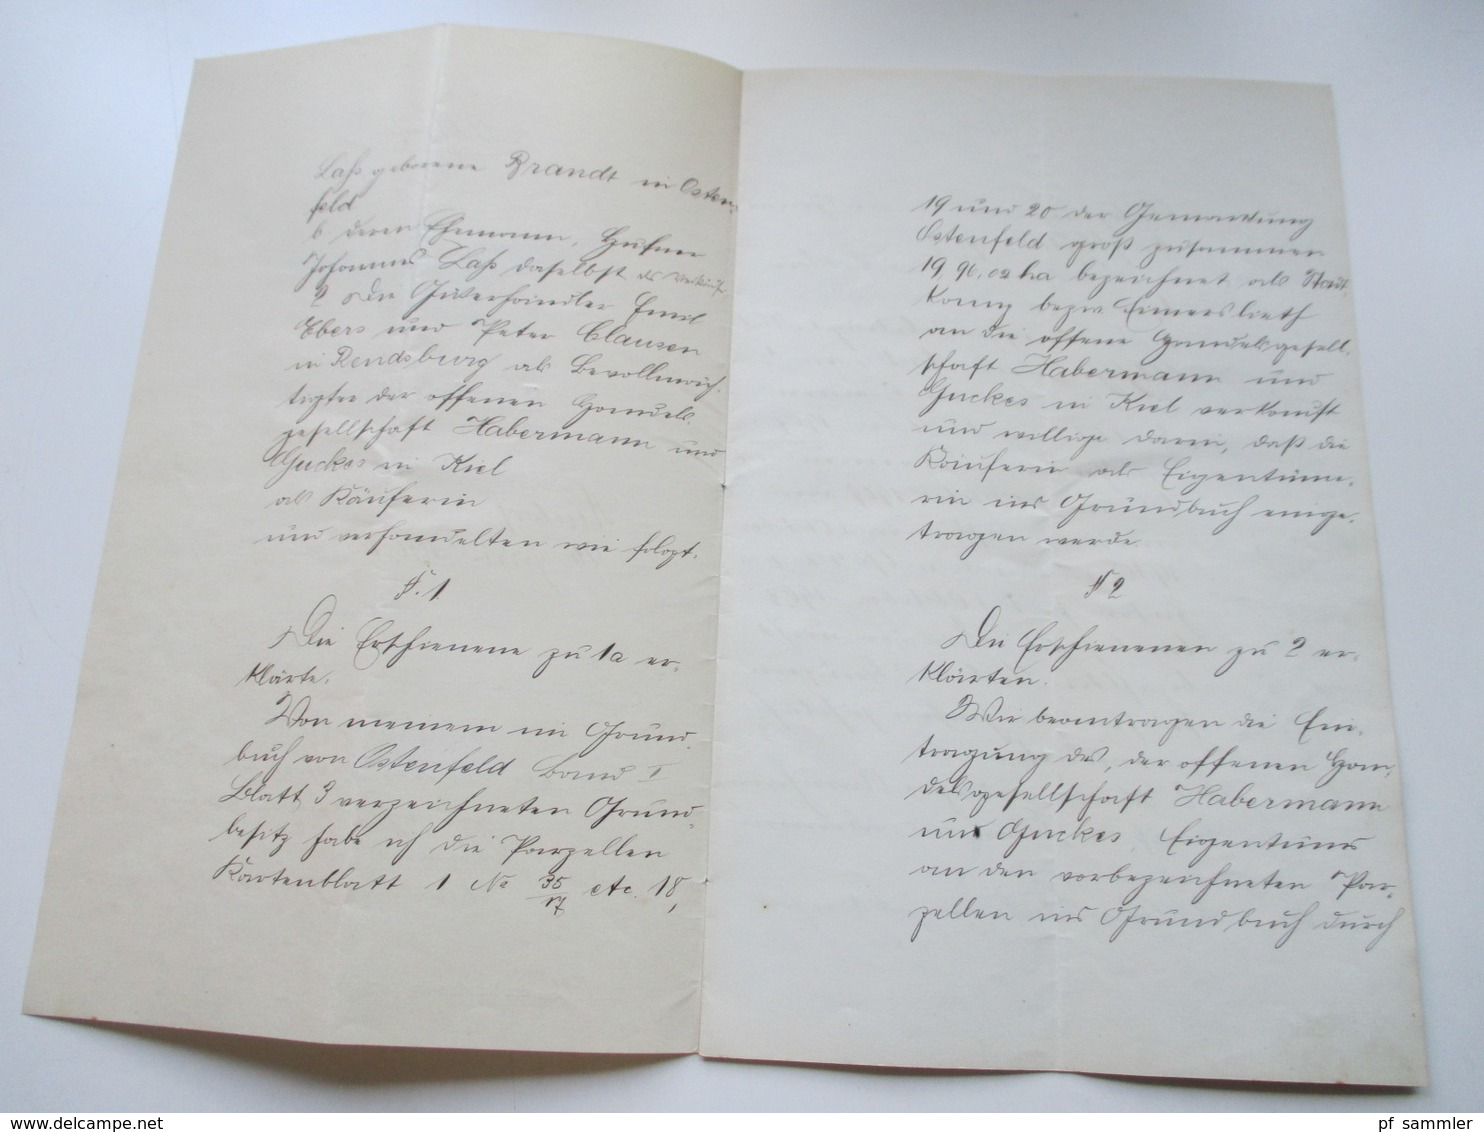 Laß geborene Brandt in Osten-
feld
b deren Ehemann, Hufner
Johannes Laß daselbst als Verkäufer
2 die Güterhändler Emil
Ebers und Peter Clausen
in Rendsburg als Bevollmäch-
tigte der offenen Handels-
gesellschaft Habermann und
Guckes in Kiel
als Käuferin
und verhandelten wie folgt.
§. 1
Die Erschienene zu 1a er-
klärte.
Von meinem im Grund-
buch von Ostenfeld Band I
Blatt 3 verzeichneten Grund-
besitz habe ich die Parzellen
Kartenblatt 1 No 35/17 etc. 18,
19 und 20 der Gemarkung
Ostenfeld groß zusammen
19,90,02 ha bezeichnet als
bezw
an die offene Handelsgesell-
schaft Habermann und
Guckes in Kiel verkauft
und willige darin, daß die
Käuferin als Eigentüme-
rin ins Grundbuch einge-
tragen werde.
§ 2
Die Erschienenen zu 2 er-
klärten.
Wir beantragen die Ein-
tragung des, der offenen Han-
delsgesellschaft Habermann
und Guckes, Eigentums
an den vorbezeichneten Par-
zellen ins Grundbuch durch
www.delcampe.net
pf_sammler